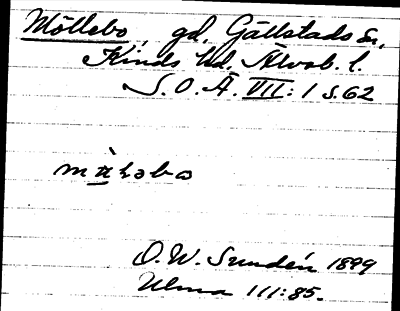 Möllebo, gd, Gällstads sn,
Kinds hd. Älvsb. l.
S.O.Ä. VII: 1 s. 62
O.W. Sundén 1899
Ulma 111:85.